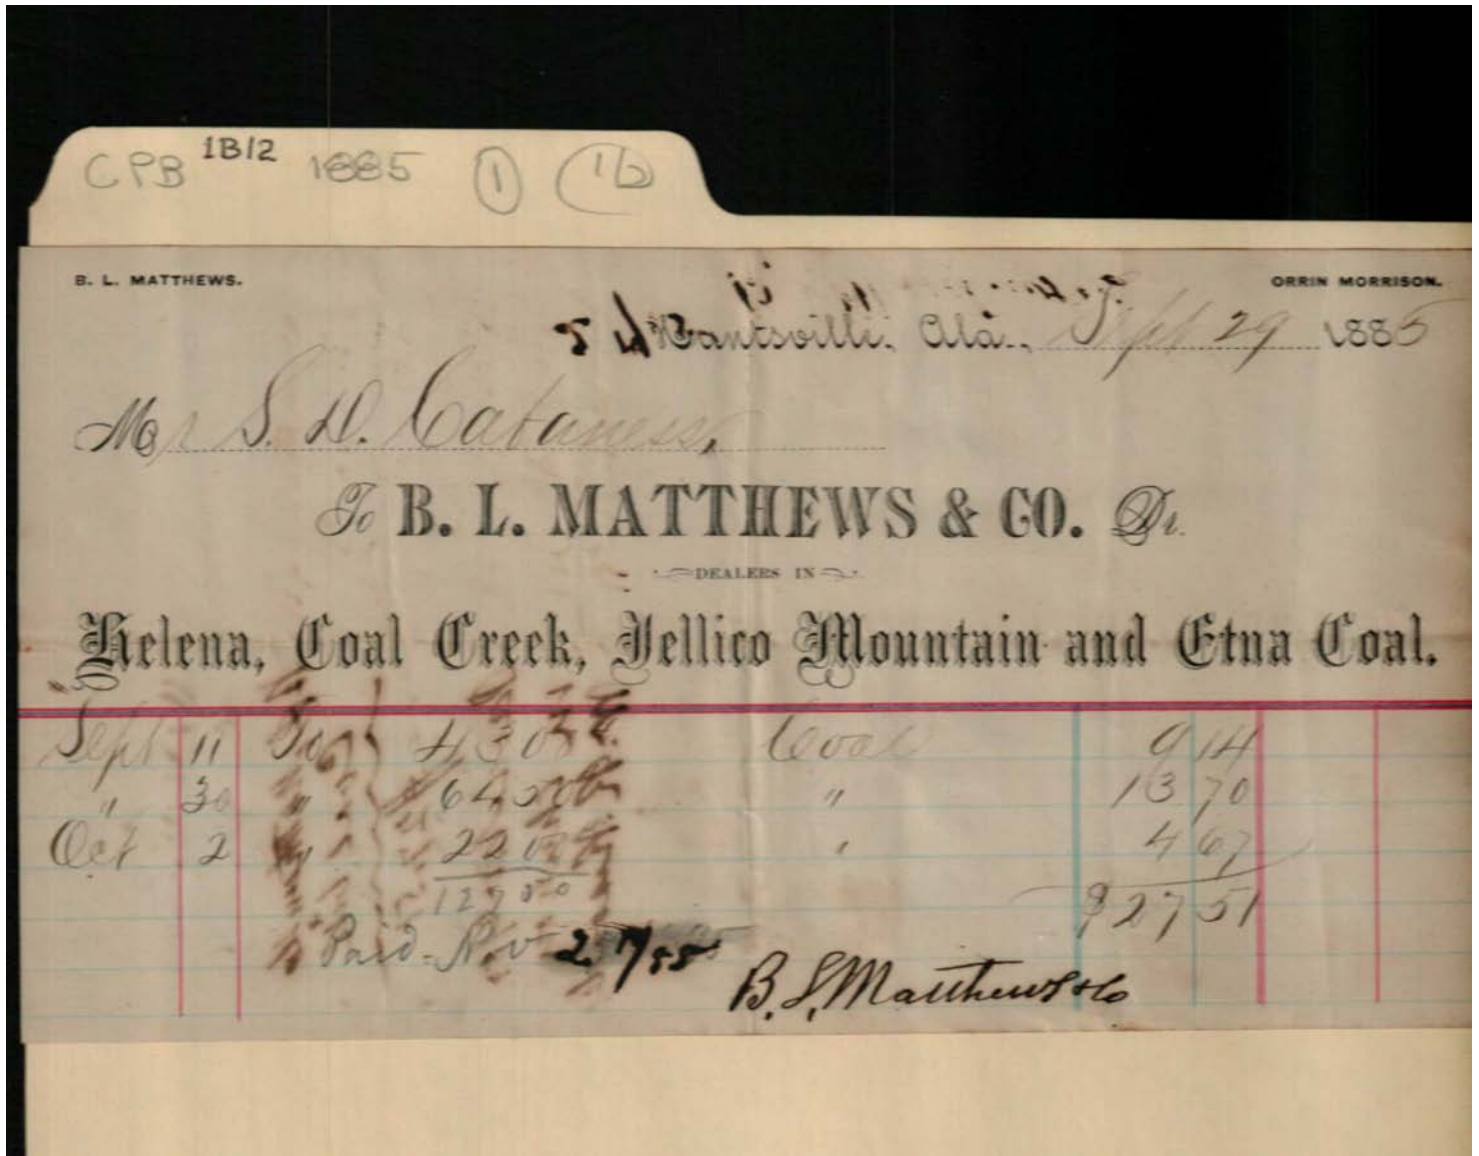 CPB 1B12 1885 1 1b
B. L. MATTHEWS. ORRIN MORRISON.
Huntsville, Ala., Sept 29 1885
Mr S. D. Cabaness,
To B. L. MATTHEWS & CO. Dr.
DEALERS IN
Helena, Coal Creek, Jellico Mountain and Etna Coal.
Sept 11 To 4300 Coal 9 14
" 30 " 6400 " 13 70
Oct 2 " 2200 " 4 67
12900 $27 51
Paid. Nov 2
B. L. Matthews & Co